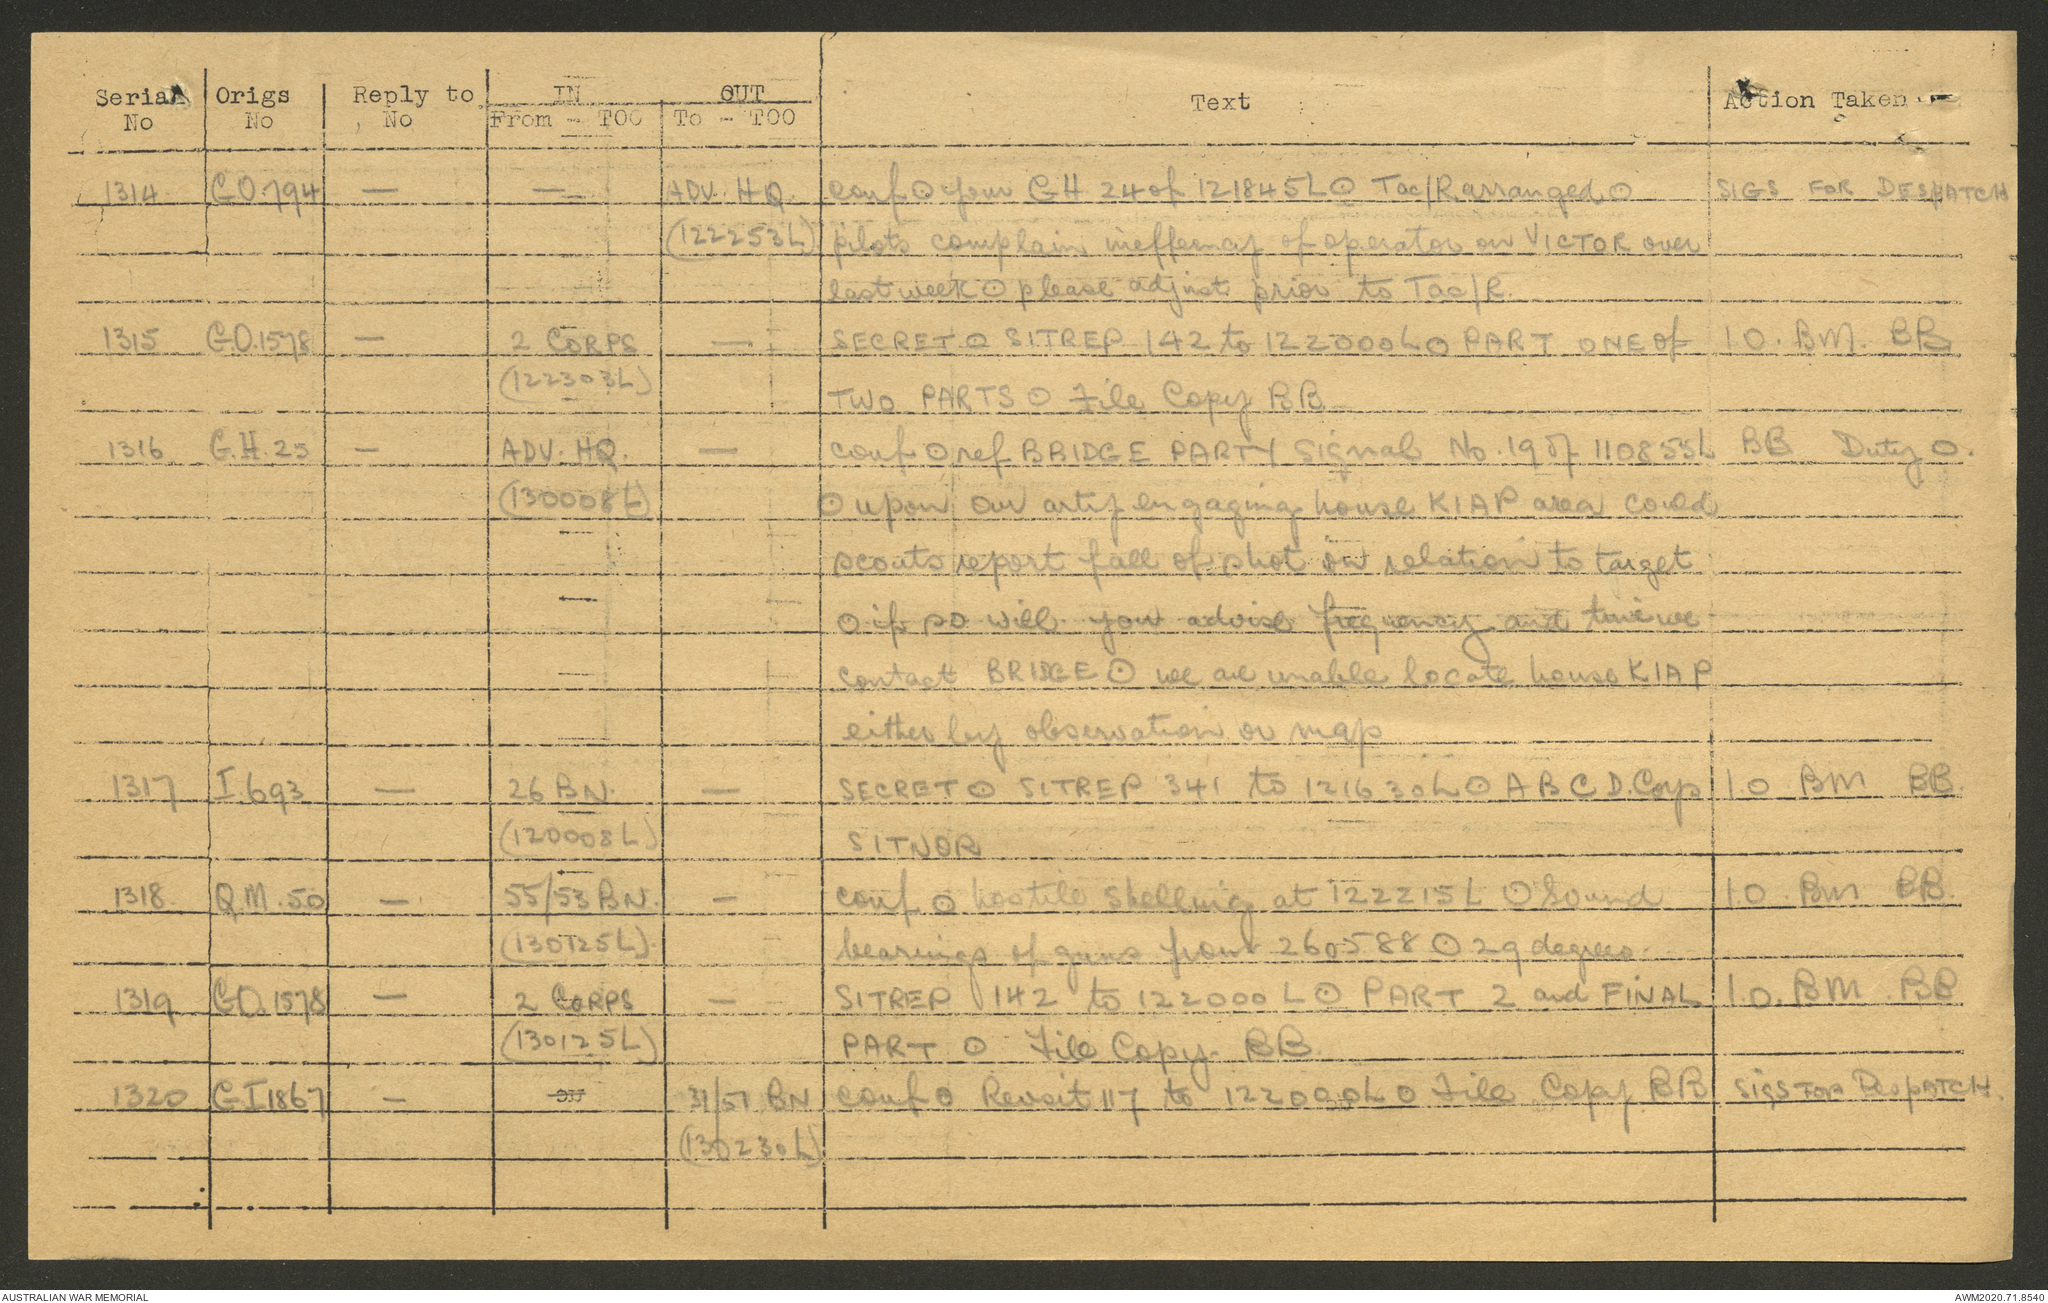 Serial No | Origs No | Reply to No | IN From - TOO | OUT To - TOO | Text | Action Taken
1314 | G.O.794 | — | — | ADV. HQ. | conf ⊙ your GH 24 of 121845L ⊙ Tac/R arranged ⊙ | SIGS FOR DESPATCH
(122253L) | pilots complain inefficiency of operator on VICTOR over
last week ⊙ please adjust prior to Tac/R.
1315 | G.O.1578 | — | 2 CORPS | — | SECRET ⊙ SITREP 142 to 122000L ⊙ PART ONE of | I.O. BM. BB
(122303L) | TWO PARTS ⊙ File Copy BB
1316 | G.H.25 | — | ADV. HQ. | — | conf ⊙ ref BRIDGE PARTY Signal No. 19 of 110855L | BB Duty O.
(130008L) | ⊙ upon our arty engaging house KIAP area could
scouts report fall of shot in relation to target
⊙ if so will you advise frequency and time we
contact BRIDGE ⊙ we are unable locate house KIAP
either by observation or map
1317 | I.693 | — | 26 BN. | — | SECRET ⊙ SITREP 341 to 121630L ⊙ A B C D. Coys | I.O. BM BB.
(120008L) | SITNOR
1318 | Q.M.50 | — | 55/53 BN. | — | conf ⊙ hostile shelling at 122215L ⊙ Sound | I.O. BM BB.
(130125L). | bearings of guns from 260588 ⊙ 29 degrees.
1319 | GO.1578 | — | 2 CORPS | — | SITREP 142 to 122000L ⊙ PART 2 and FINAL | I.O. BM BB
(130125L) | PART ⊙ File Copy. BB.
1320 | G.I 1867 | — | — | 31/51 BN | conf ⊙ Revsit 117 to 122000L ⊙ File Copy BB | SIGS FOR DESPATCH.
(130230L)
AUSTRALIAN WAR MEMORIAL
AWM2020.71.8540